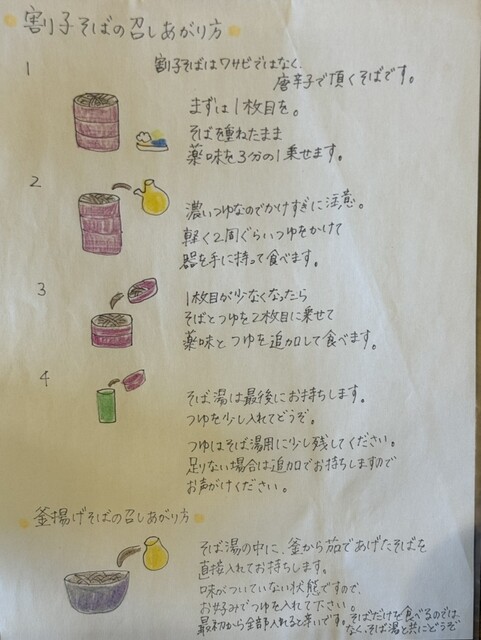 割子そばの召しあがり方
1
割子そばはワサビではなく、
唐辛子で頂くそばです。
まずは1枚目を。
そばを重ねたまま
薬味を3分の1乗せます。
2
濃いつゆなのでかけすぎに注意。
軽く2周ぐらいつゆをかけて
器を手に持って食べます。
3
1枚目が少なくなったら
そばとつゆを2枚目に乗せて
薬味とつゆを追加して食べます。
4
そば湯は最後にお持ちします。
つゆを少し入れてどうぞ。
つゆはそば湯用に少し残してください。
足りない場合は追加でお持ちしますので
お声がけください。
釜揚げそばの召しあがり方
そば湯の中に、釜から茹であげたそばを
直接入れてお持ちします。
味がついていない状態ですので、
お好みでつゆを入れて下さい。
最初から全部入れると辛いです。
そばだけを食べるのでは
なく、そば湯と共にどうぞ